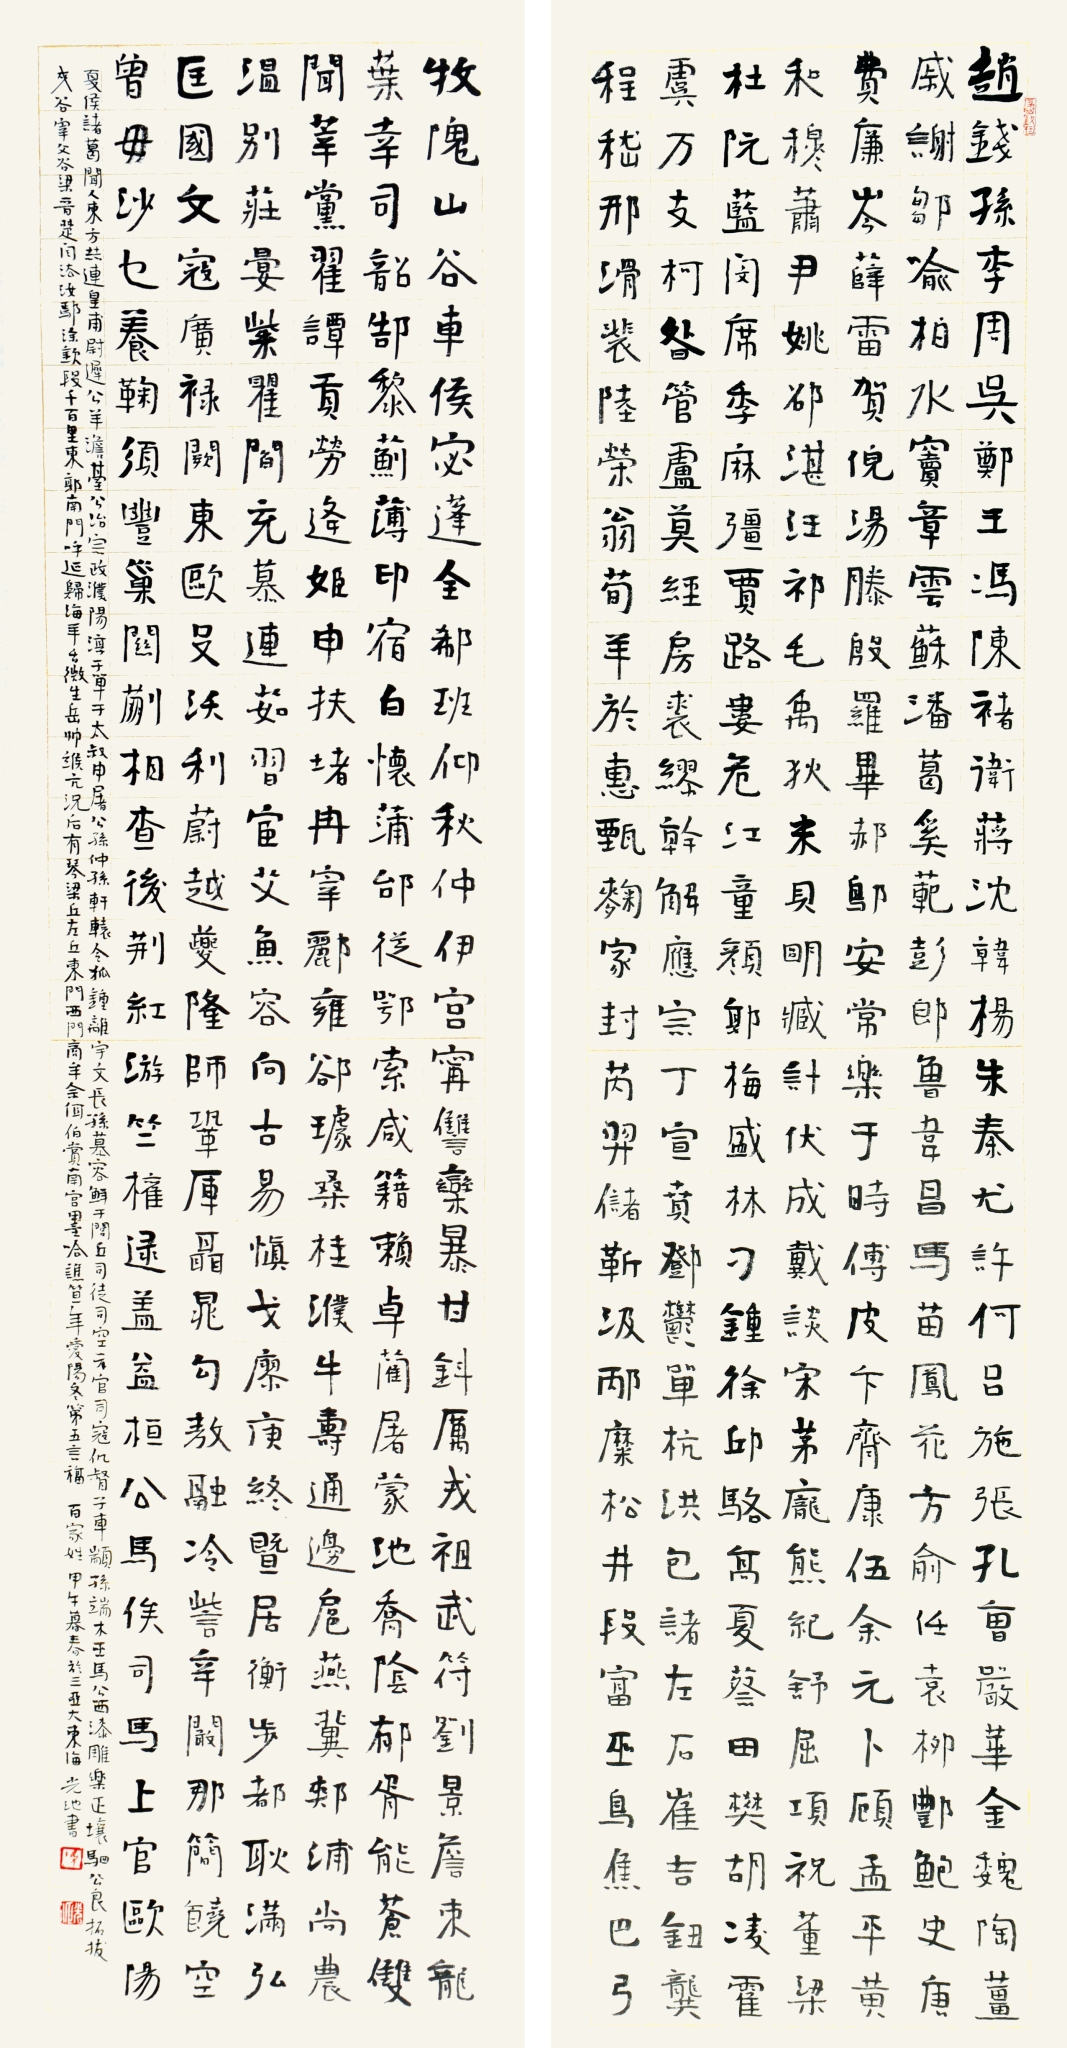 趙錢孫李周吳鄭王馮陳褚衛蔣沈韓楊朱秦尤許何呂施張孔曹嚴華金魏陶薑
戚謝鄒喻柏水竇章雲蘇潘葛奚範彭郎魯韋昌馬苗鳳花方俞任袁柳酆鮑史唐
費廉岑薛雷賀倪湯滕殷羅畢郝鄔安常樂于時傅皮卞齊康伍余元卜顧孟平黃
和穆蕭尹姚邵湛汪祁毛禹狄米貝明臧計伏成戴談宋茅龐熊紀舒屈項祝董梁
杜阮藍閔席季麻彊賈路婁危江童顏郭梅盛林刁鍾徐邱駱高夏蔡田樊胡凌霍
虞万支柯昝管盧莫經房裘繆幹解應宗丁宣賁鄧鬱單杭洪包諸左石崔吉鈕龔
程嵇邢滑裴陸榮翁荀羊於惠甄麴家封芮羿儲靳汲邴糜松井段富巫烏焦巴弓
牧隗山谷車侯宓蓬全郗班仰秋仲伊宮甯讎欒暴甘鈄厲戎祖武符劉景詹束龍
葉幸司韶郜黎薊薄印宿白懷蒲邰從鄂索咸籍賴卓藺屠蒙池喬陰郁胥能蒼雙
聞莘黨翟譚貢勞逄姬申扶堵冉宰酈雍卻璩桑桂濮牛壽通邊扈燕冀郟浦尚農
溫別莊晏柴瞿閻充慕連茹習宦艾魚容向古易慎戈廖庾終暨居衡步都耿滿弘
匡國文寇廣祿闕東歐殳沃利蔚越夔隆師鞏厙聶晁勾敖融冷訾辛闞那簡饒空
曾毋沙乜養鞠須豐巢關蒯相查後荊紅游竺權逯蓋益桓公馬俟司馬上官歐陽
夏侯諸葛聞人東方赫連皇甫尉遲公羊澹臺公冶宗政濮陽淳于單于太叔申屠公孫仲孫軒轅令狐鍾離宇文長孫慕容鮮于閭丘司徒司空亓官司寇仉督子車顓孫端木巫馬公西漆雕樂正壤駟公良拓拔
夾谷宰父谷梁晉楚閆法汝鄢涂欽段干百里東郭南門呼延歸海羊舌微生岳帥緱亢況后有琴梁丘左丘東門西門商牟佘佴伯賞南宮墨哈譙笪年愛陽佟第五言福 百家姓 甲午暮春於三亞大東海 光地書